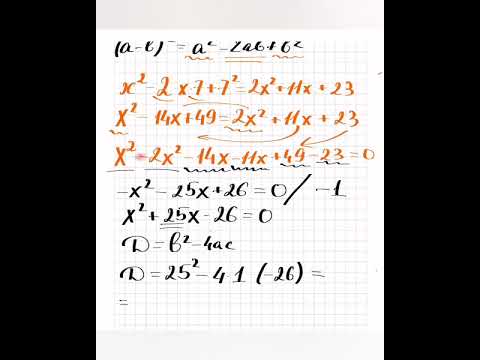 (a-b)² = a² - 2ab + b²
x² - 2x·7 + 7² = 2x² + 11x + 23
x² - 14x + 49 = 2x² + 11x + 23
x² - 2x² - 14x - 11x + 49 - 23 = 0
-x² - 25x + 26 = 0 / -1
x² + 25x - 26 = 0
D = b² - 4ac
D = 25² - 4·1 (-26) =
=